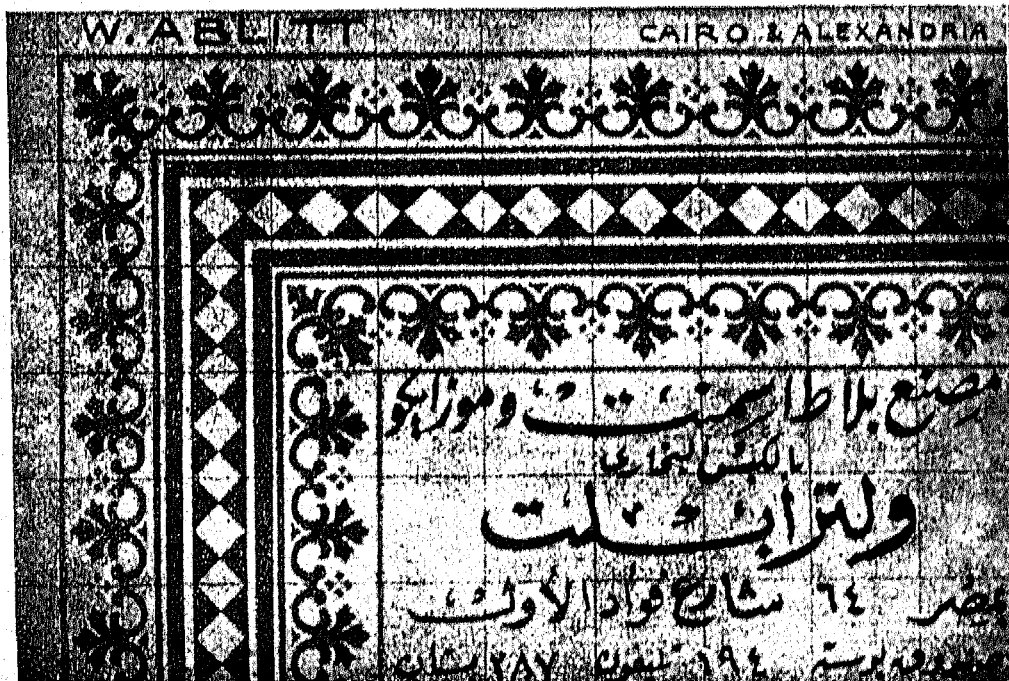 W. ABLITT CAIRO & ALEXANDRIA
مصنع بلاط اسمنت وموزايكو
بالكبس البخارى
ولتر ابلت
بمصر ٦٤ شارع فواد الأول
صندوق بوستة ١٩٤ تليفون ٢٨٧ بستان